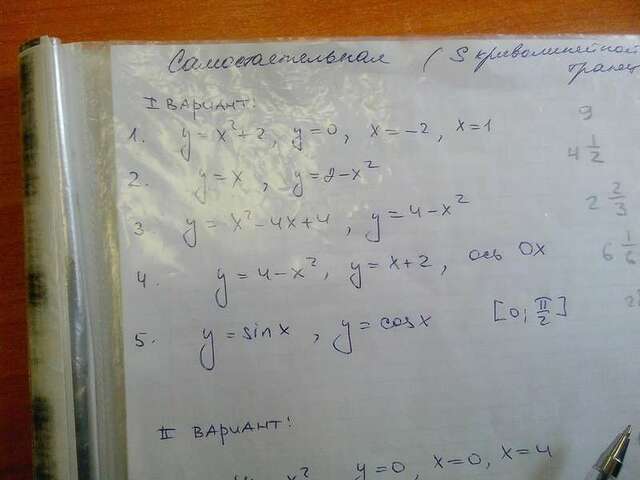 Самостоятельная (S криволинейной
трапец
I ВАРИАНТ:
1. y=x²+2, y=0, x=-2, x=1 9
2. y=x, y=2-x² 4 1/2
3 y=x²-4x+4, y=4-x² 2 2/3
4. y=4-x², y=x+2, ось OX 6 1/6
5. y=sinx, y=cosx [0; π/2]
II ВАРИАНТ:
x² y=0, x=0, x=4